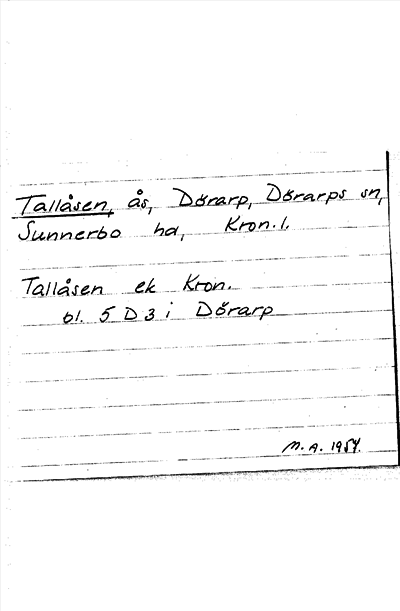 Tallåsen, ås, Dörarp, Dörarps sn,
Sunnerbo hd, Kron. l.
Tallåsen ek Kron.
bl. 5 D 3 i Dörarp
M. A. 1954.